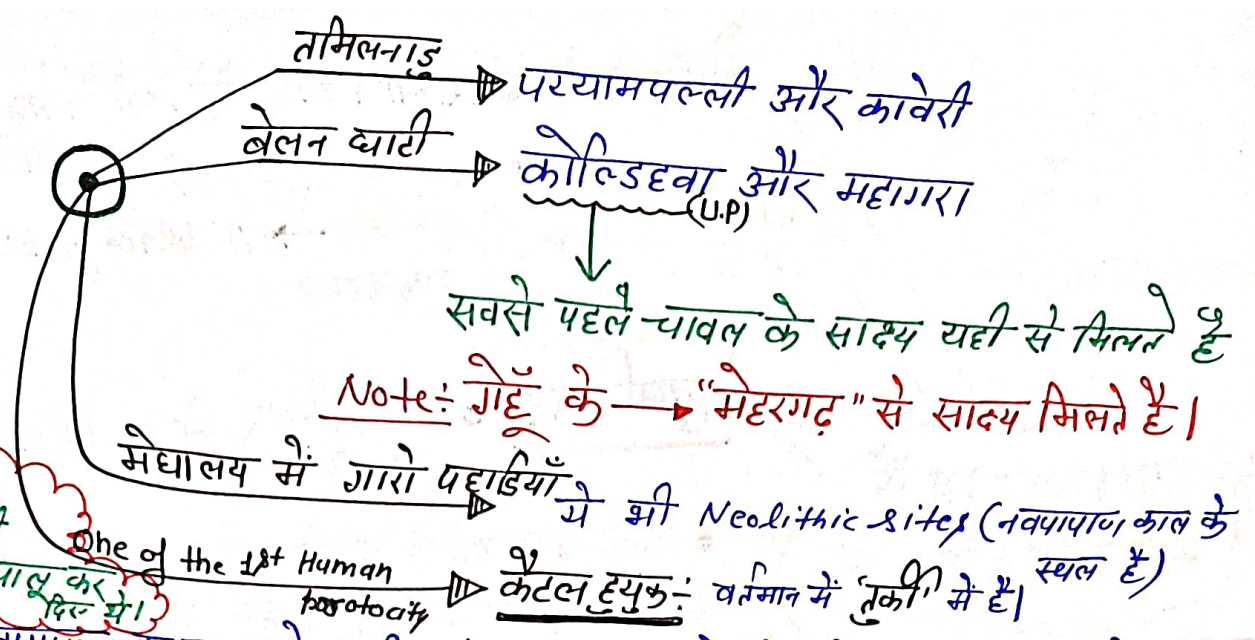 तमिलनाडु
परयामपल्ली और कावेरी
बेलन घाटी
कोल्डिहवा और महागरा
(U.P)
सबसे पहले चावल के साक्ष्य यही से मिलते है
Note: गेहूँ के → "मेहरगढ़" से साक्ष्य मिलते है।
मेघालय में गारो पहाडियाँ
ये भी Neolithic sites (नवपाषाण काल के
स्थल है)
One of the 1st Human
कैटल हुयुक:- वर्तमान में "तुर्की" में है।
कर
दिए थे।